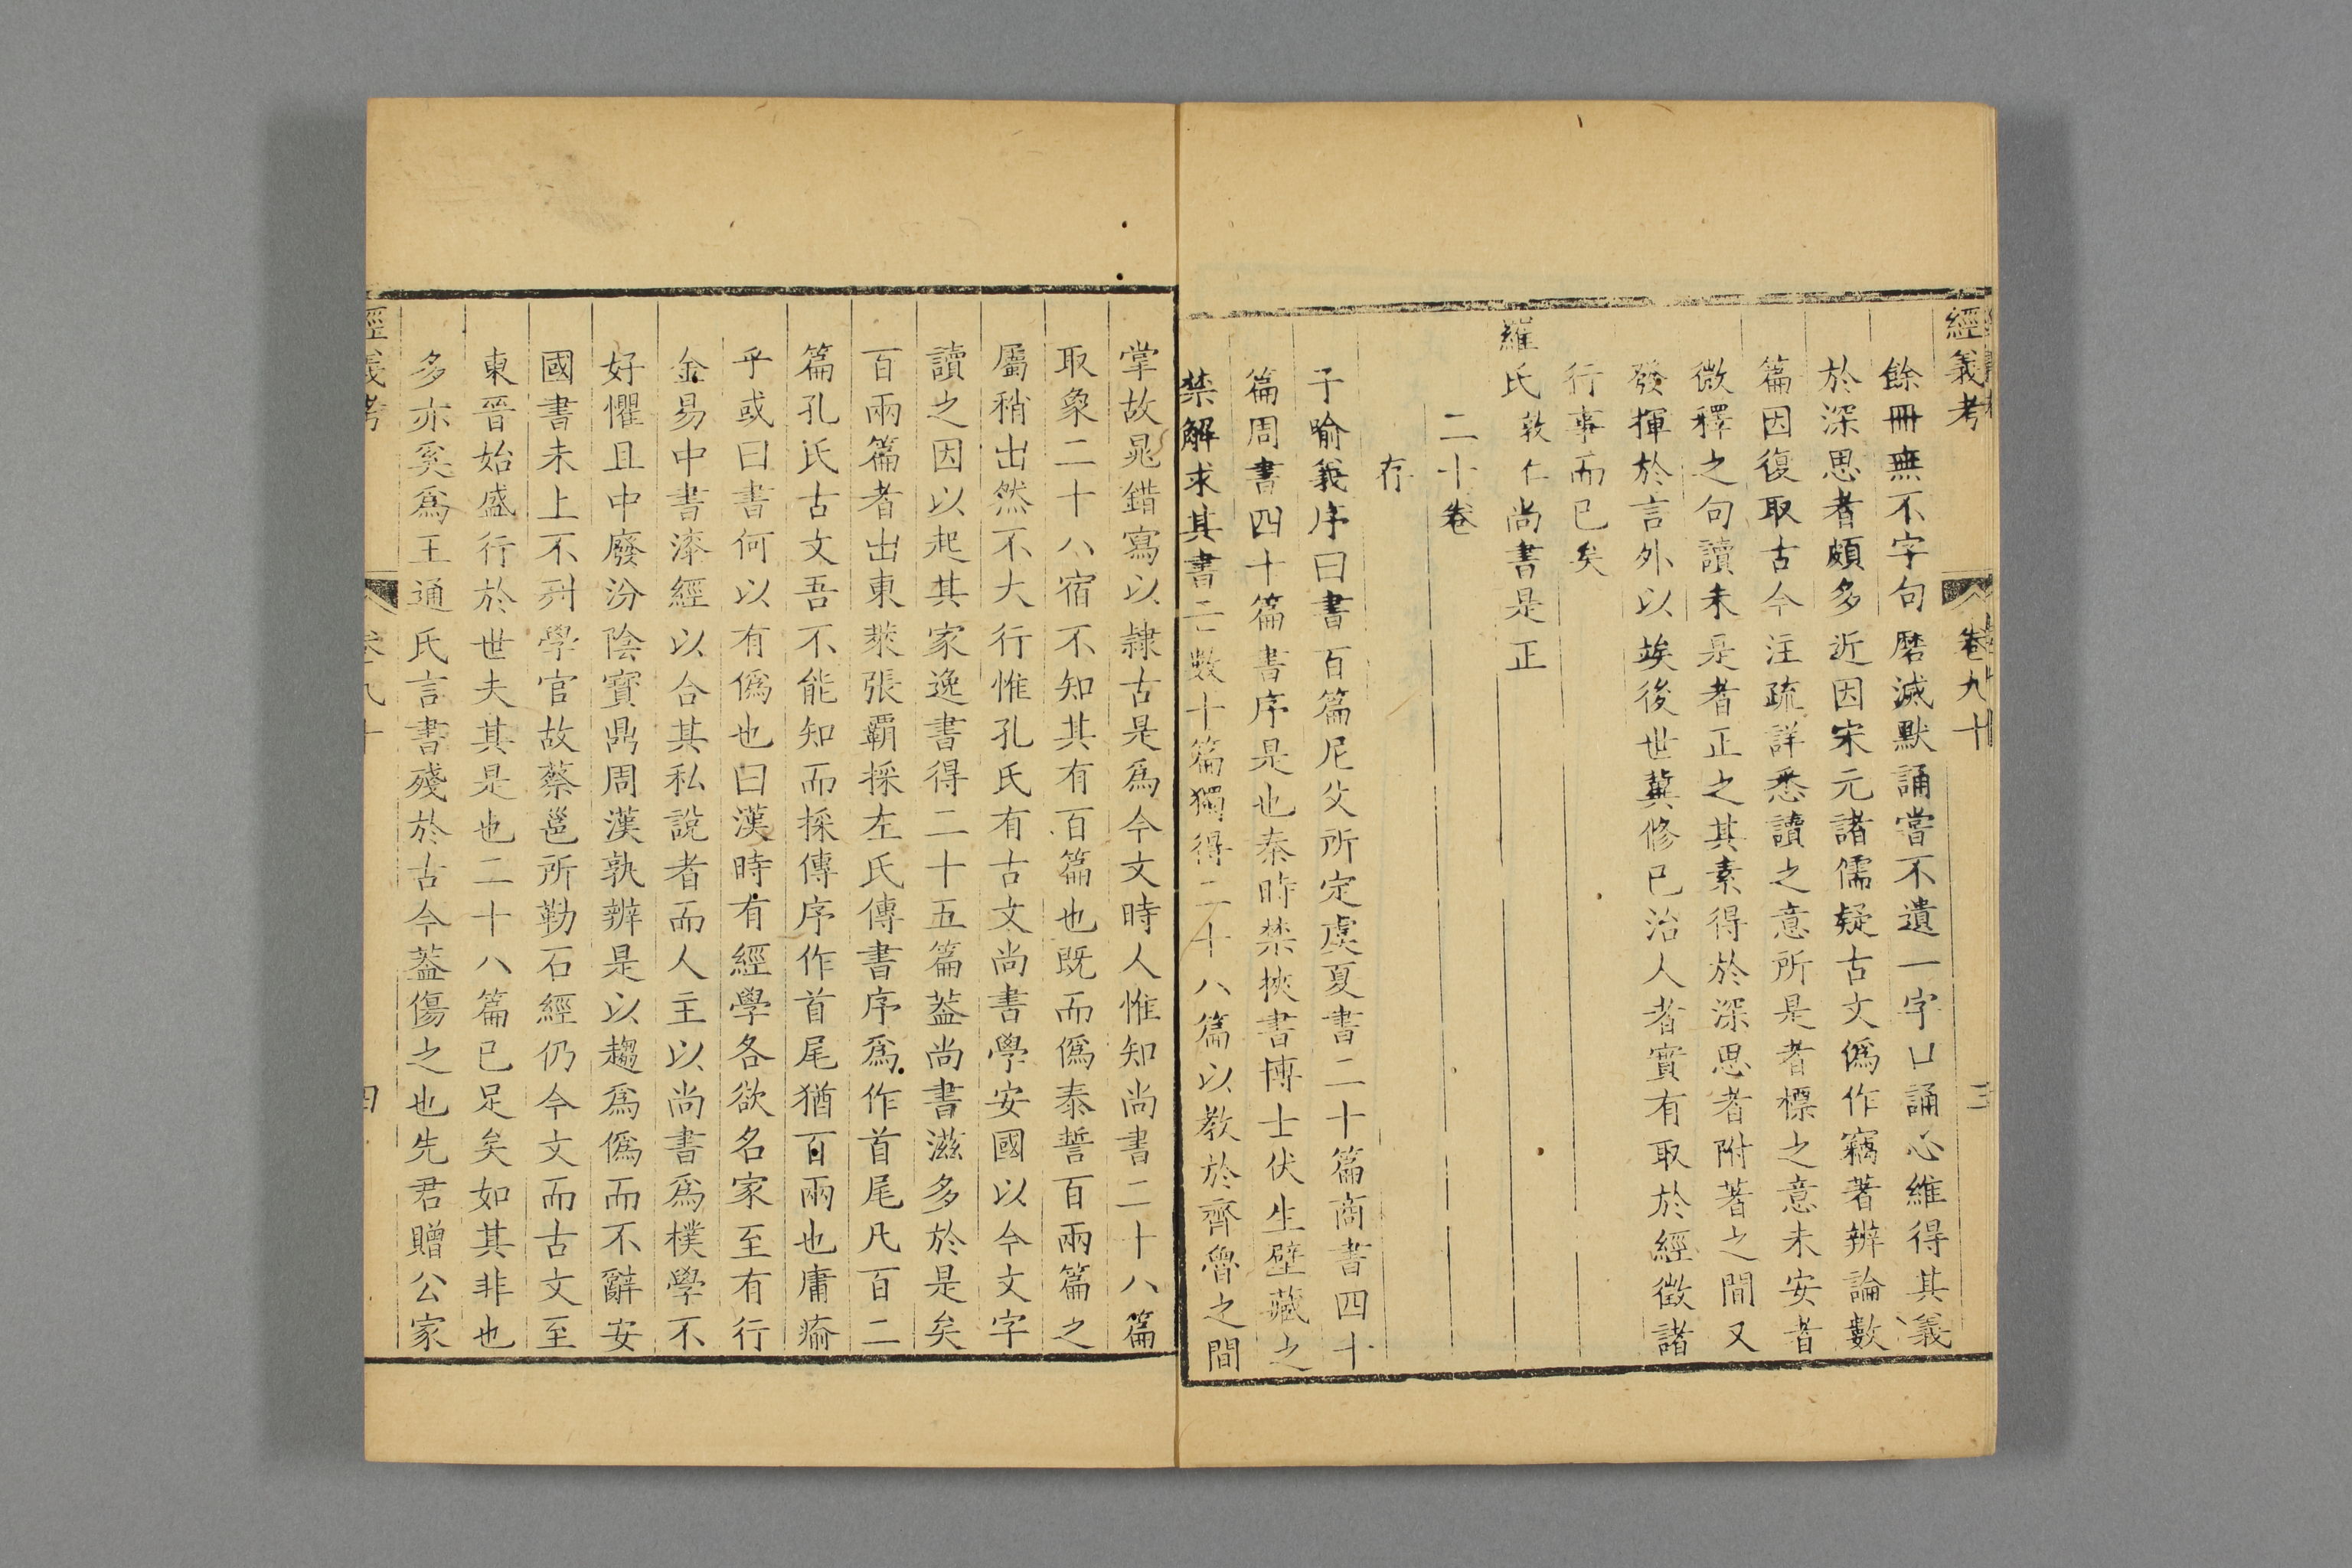 經義考
卷九十
三
餘冊無不字句磨滅默誦嘗不遺一字口誦心維得其義
於深思者頗多近因宋元諸儒疑古文僞作竊著辨論數
篇因復取古今注疏詳悉讀之意所是者標之意未安者
微釋之句讀未是者正之其素得於深思者附著之間又
發揮於言外以竢後世冀修已治人者實有取於經徵諸
行事而已矣
羅氏敦仁尚書是正
二十卷
存
子喻義序曰書百篇尼父所定虞夏書二十篇商書四十
篇周書四十篇書序是也秦時禁挾書博士伏生壁藏之
禁解求其書亡數十篇獨得二十八篇以教於齊魯之間
掌故晁錯寫以隷古是爲今文時人惟知尚書二十八篇
取象二十八宿不知其有百篇也既而僞泰誓百兩篇之
屬稍出然不大行惟孔氏有古文尚書學安國以今文字
讀之因以起其家逸書得二十五篇葢尚書滋多於是矣
百兩篇者出東萊張覇採左氏傳書序爲作首尾凡百二
篇孔氏古文吾不能知而採傳序作首尾猶百兩也庸瘉
乎或曰書何以有僞也曰漢時有經學各欲名家至有行
金易中書漆經以合其私說者而人主以尚書爲樸學不
好懼且中廢汾陰寶鼎周漢孰辨是以趨爲僞而不辭安
國書未上不列學官故蔡邕所勒石經仍今文而古文至
東晉始盛行於世夫其是也二十八篇已足矣如其非也
多亦奚爲王通氏言書殘於古今葢傷之也先君贈公家
經義考
卷九十
四